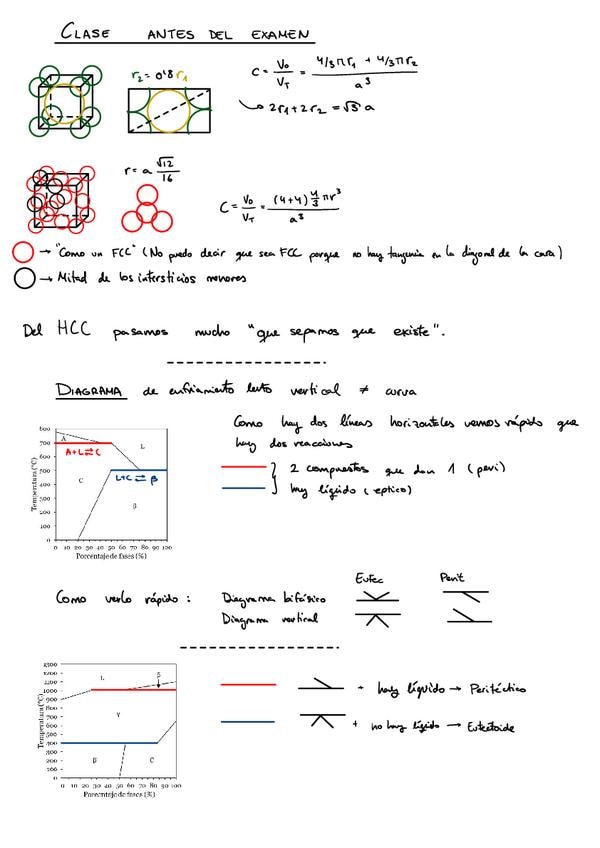 CLASE ANTES DEL EXAMEN
r₂ = 0'8 r₁
C = V₀/V_T = (4/3πr₁ + 4/3πr₂)/a³
2r₁ + 2r₂ = √3 a
r = a √12/16
C = V₀/V_T = ((4+4) 4/3 πr³)/a³
→ "Como un FCC" (No puedo decir que sea FCC porque no hay tangencia en la diagonal de la cara)
→ Mitad de los intersticios menores
Del HCC pasamos mucho "que sepamos que existe".
DIAGRAMA de enfriamiento lento vertical ≠ curva
Como hay dos líneas horizontales vemos rápido que
hay dos reacciones
2 compuestos que dan 1 (peri)
hay líquido (eptico)
Temperatura (°C)
600
700
600
500
400
300
200
100
0
A
L
A+L⇄C
L+C⇄β
C
β
0 10 20 30 40 50 60 70 80 90 100
Porcentaje de fases (%)
Eutec Perit
Como verlo rápido: Diagrama bifásico
Diagrama vertical
Temperatura (°C)
1300
1200
1100
1000
900
800
700
600
500
400
300
200
100
0
L
δ
γ
β
C
0 10 20 30 40 50 60 70 80 90 100
Porcentaje de fases (%)
+ hay líquido → Peritéctico
+ no hay líquido → Eutectoide